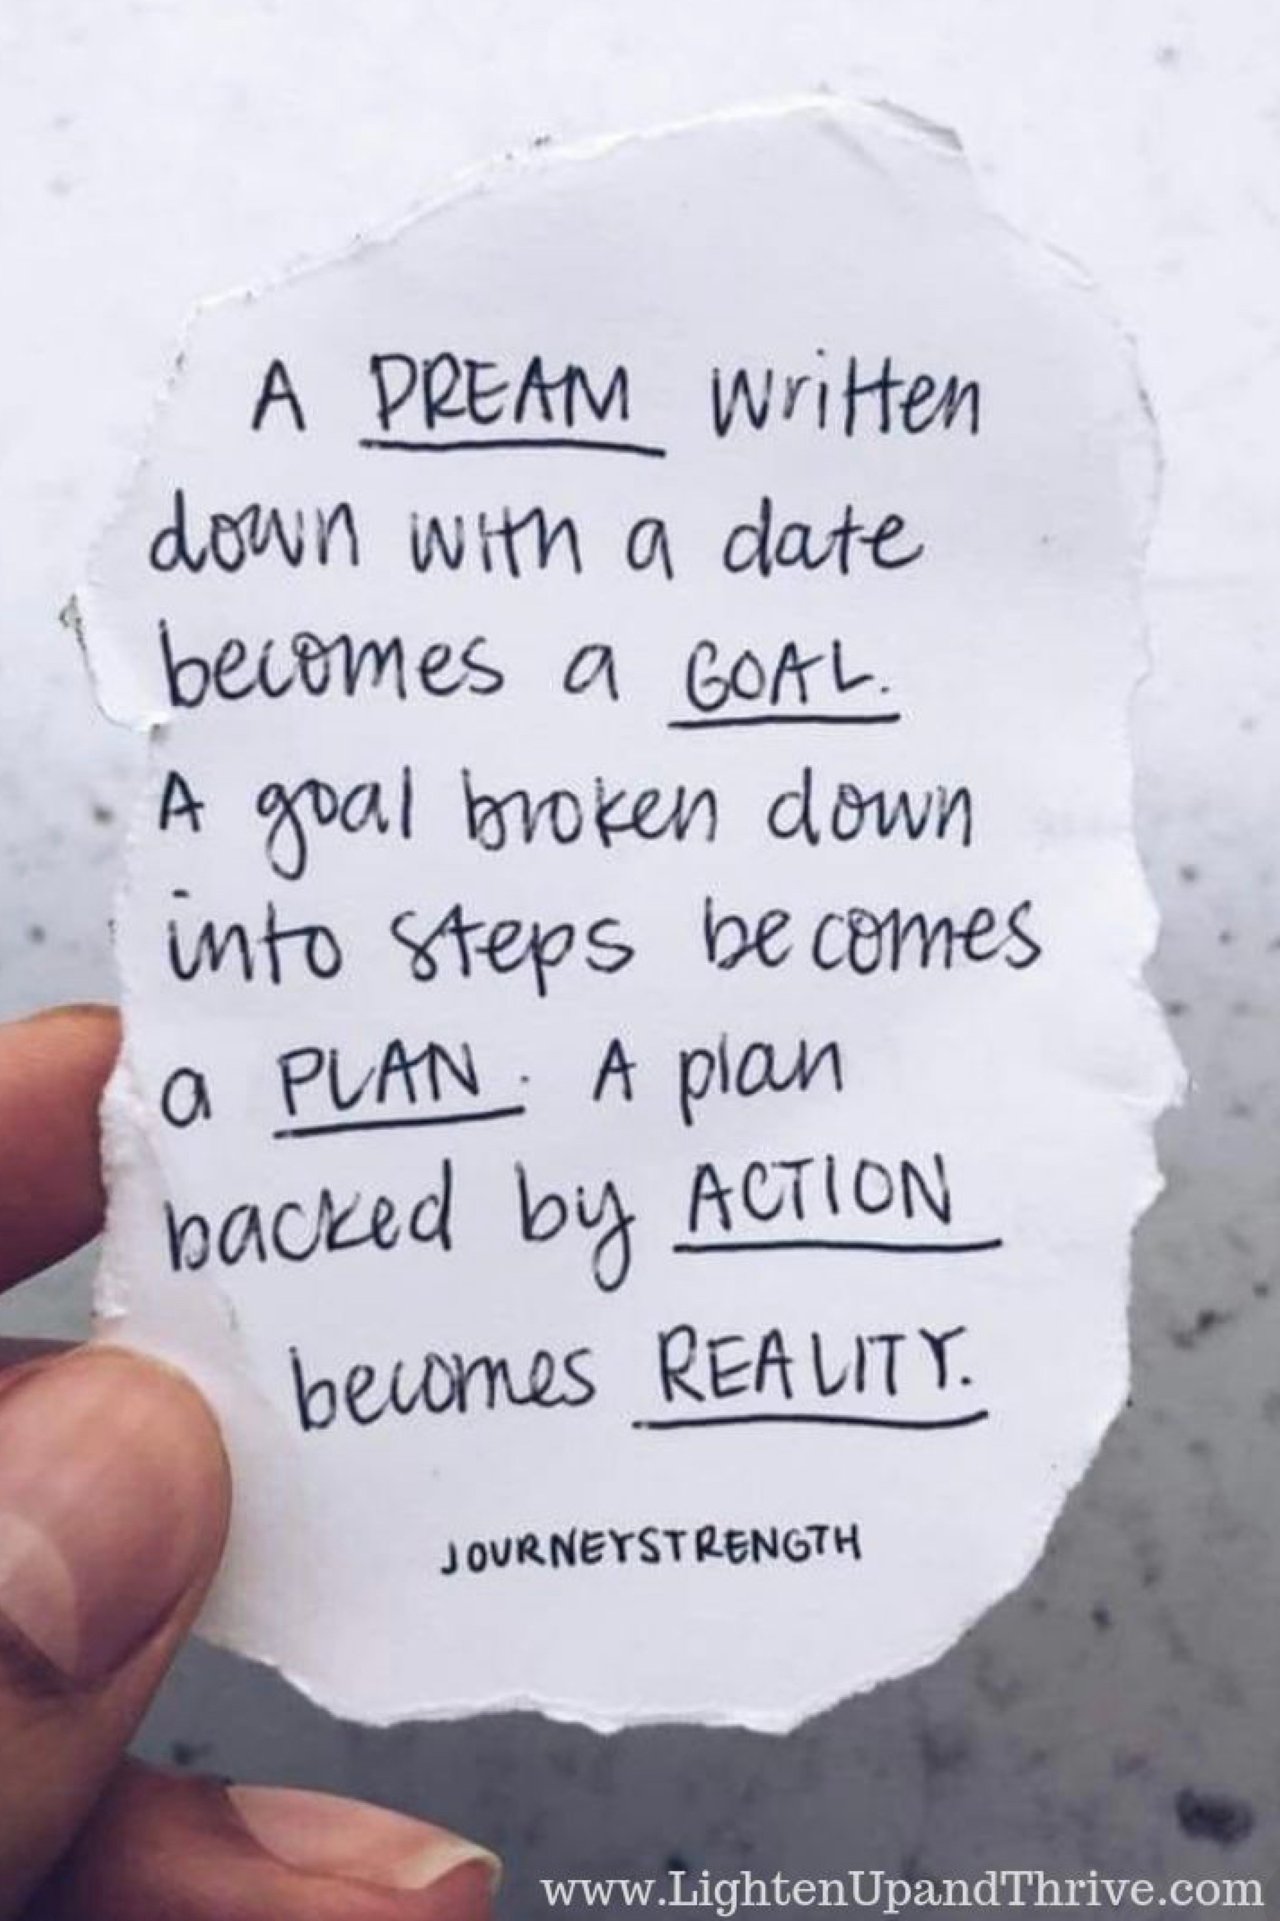 A DREAM written
down with a date
becomes a GOAL.
A goal broken down
into steps becomes
a PLAN. A plan
backed by ACTION
becomes REALITY.
JOURNEYSTRENGTH
www.LightenUpandThrive.com